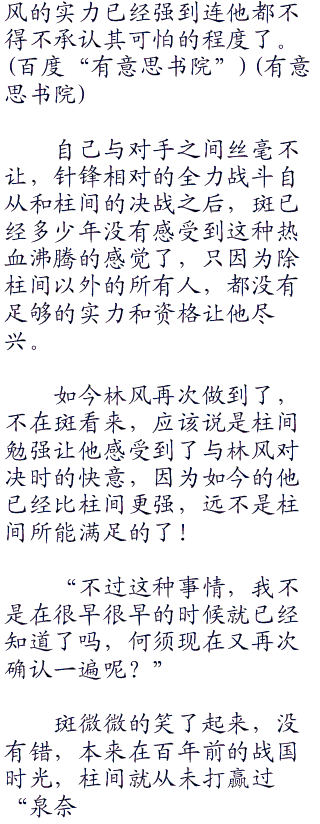 风的实力已经强到连他都不
得不承认其可怕的程度了。
(百度“有意思书院”)(有意
思书院)
自己与对手之间丝毫不
让，针锋相对的全力战斗自
从和柱间的决战之后，斑已
经多少年没有感受到这种热
血沸腾的感觉了，只因为除
柱间以外的所有人，都没有
足够的实力和资格让他尽
兴。
如今林风再次做到了，
不在斑看来，应该说是柱间
勉强让他感受到了与林风对
决时的快意，因为如今的他
已经比柱间更强，远不是柱
间所能满足的了！
“不过这种事情，我不
是在很早很早的时候就已经
知道了吗，何须现在又再次
确认一遍呢？”
斑微微的笑了起来，没
有错，本来在百年前的战国
时光，柱间就从未打赢过
“泉奈